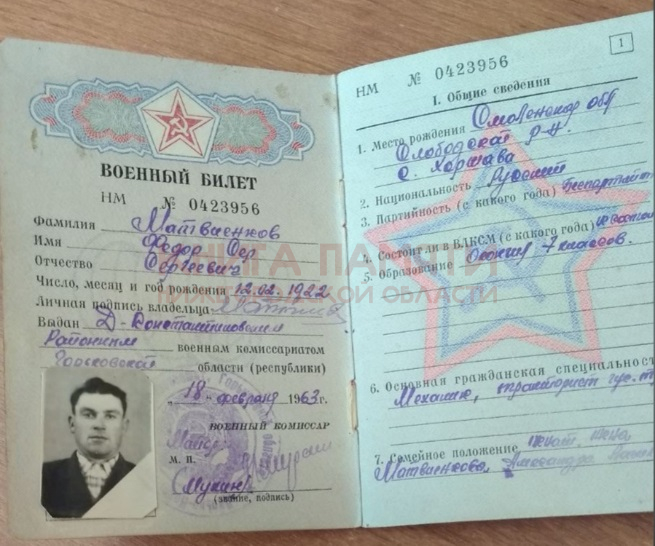 ВОЕННЫЙ БИЛЕТ
НМ № 0423956
Фамилия Матвиенков
Имя Федор Сер
Отчество Сергеевич
Число, месяц и год рождения 12.02.1922
Личная подпись владельца
Выдан Д-Константиновским
Районным военным комиссариатом
Горьковской области (республики)
„18" февраля 1963 г.
ВОЕННЫЙ КОМИССАР
Майор
М. П.
(Мухин)
(звание, подпись)
1
НМ № 0423956
I. Общие сведения
1. Место рождения Смоленская обл
Слободской р-н.
с. Хоршава
2. Национальность Русский
3. Партийность (с какого года) беспартийн
4. Состоит ли в ВЛКСМ (с какого года) не состоит
5. Образование Окончил 7 классов.
6. Основная гражданская специальност
Механик, тракторист
7. Семейное положение женат. жена,
Матвиенкова, Александра
КНИГА ПАМЯТИ
НИЖЕГОРОДСКОЙ ОБЛАСТИ